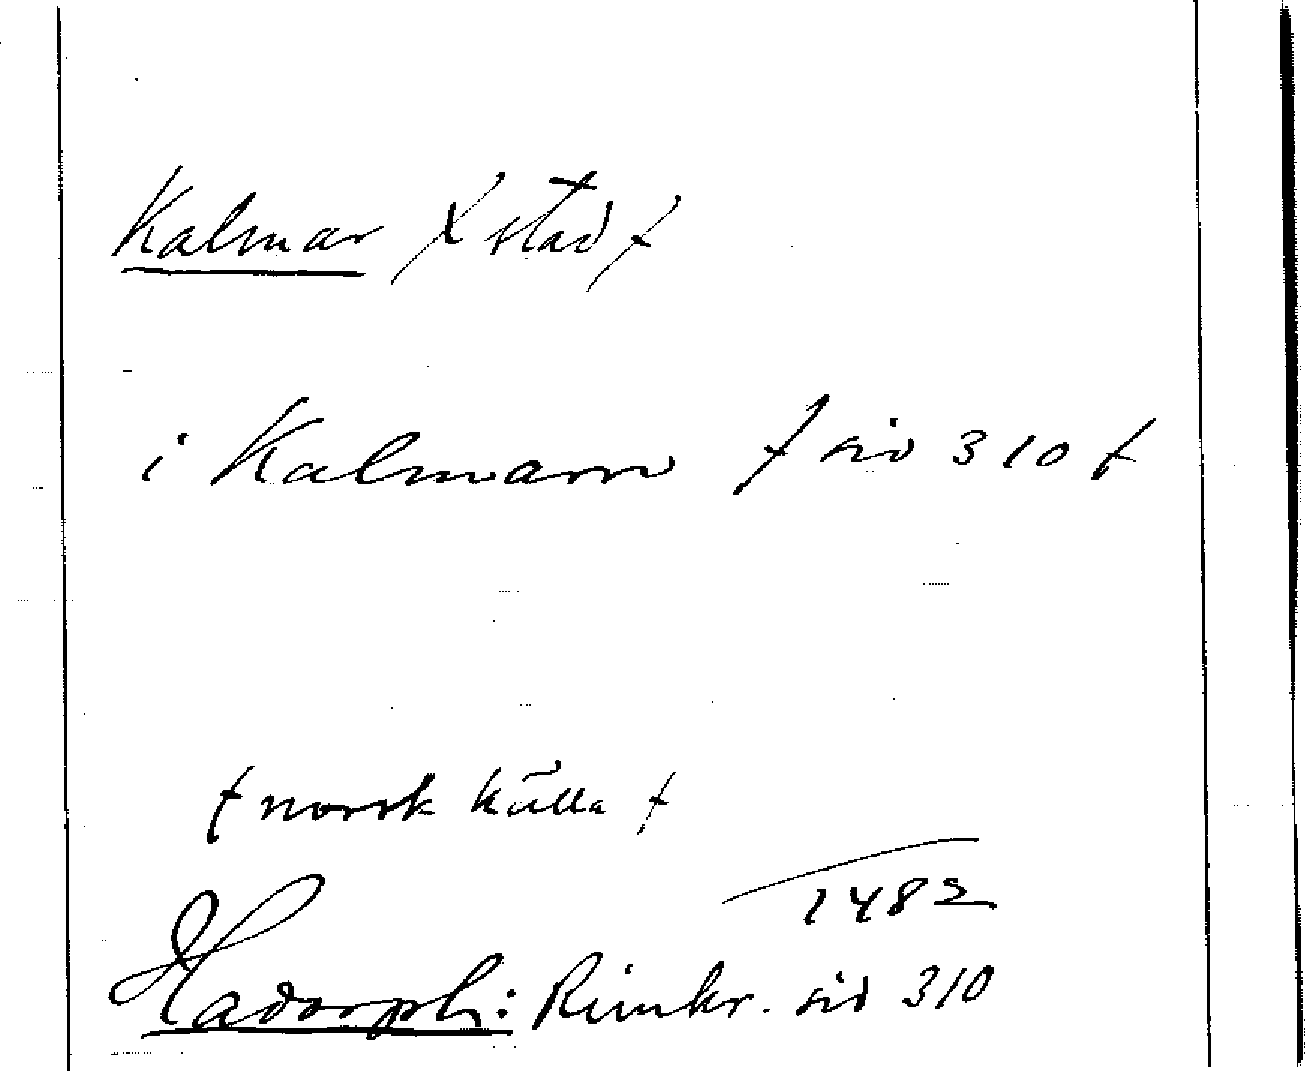 Kalmar / stad /
i Kalmarn / sid 310 /
/ norsk källa /
1482
Hadorph: Rimkr. sid 310